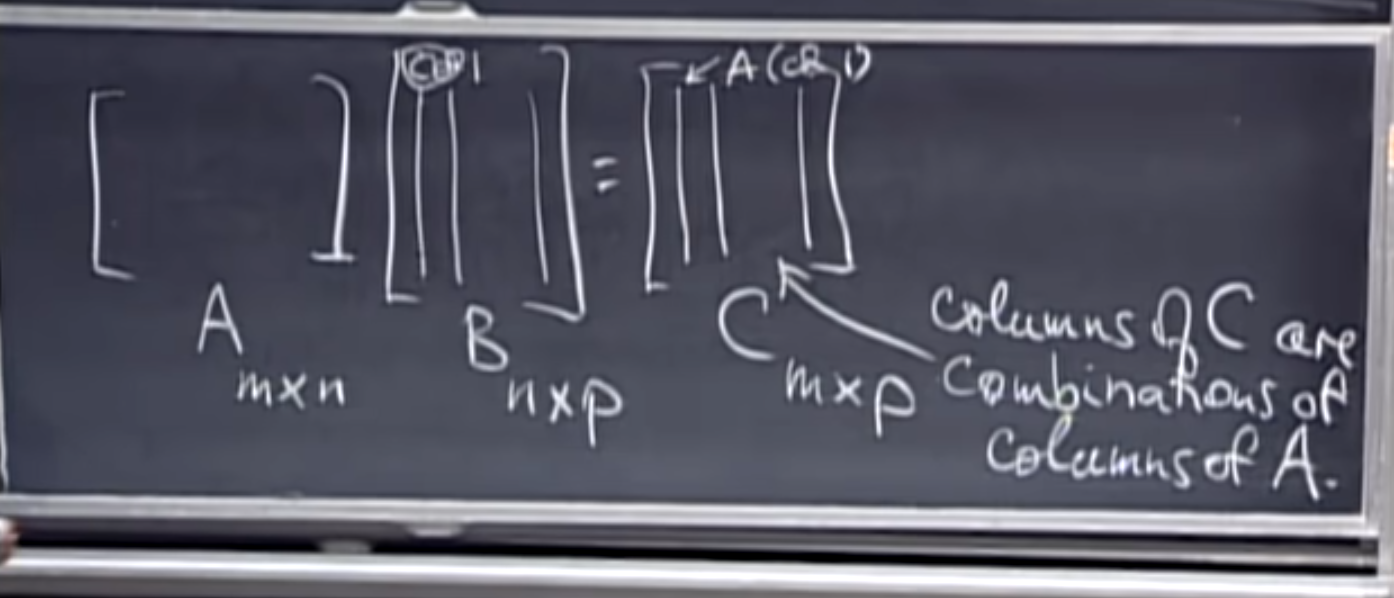 col 1
A (col 1)
=
A
m×n
B
n×p
C
m×p
columns of C are
combinations of
columns of A.